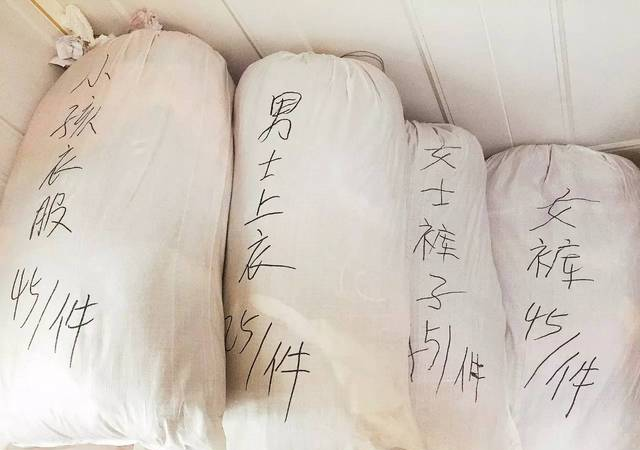 小孩衣服
45/件
男士上衣
25/件
女士裤子
5/件
女裤
45/件